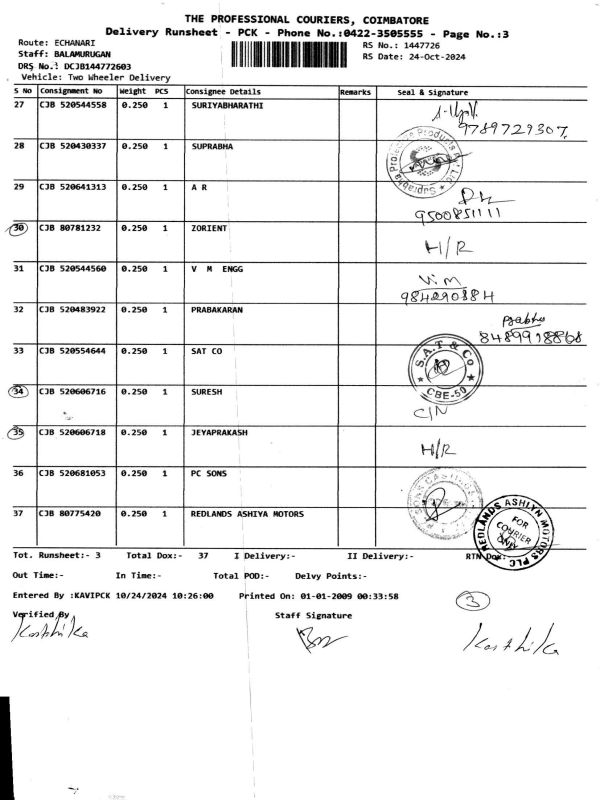 THE PROFESSIONAL COURIERS, COIMBATORE
Delivery Runsheet - PCK - Phone No.:0422-3505555 - Page No.:3
Route: ECHANARI
RS No.: 1447726
Staff: BALAMURUGAN
RS Date: 24-Oct-2024
DRS No.: DCJB144772603
Vehicle: Two Wheeler Delivery
S No Consignment No Weight PCS Consignee Details Remarks Seal & Signature
27 CJB 520544558 0.250 1 SURIYABHARATHI
9789729307
28 CJB 520430337 0.250 1 SUPRABHA
29 CJB 520641313 0.250 1 A R
9500851111
30 CJB 80781232 0.250 1 ZORIENT H/R
31 CJB 520544560 0.250 1 V M ENGG V.M
984290884
32 CJB 520483922 0.250 1 PRABAKARAN Prabhu
8489918868
33 CJB 520554644 0.250 1 SAT CO S.A.T & Co CBE-50
34 CJB 520606716 0.250 1 SURESH C/N
35 CJB 520606718 0.250 1 JEYAPRAKASH H/R
36 CJB 520681053 0.250 1 PC SONS
37 CJB 80775420 0.250 1 REDLANDS ASHIYA MOTORS REDLANDS ASHLYN MOTORS PLC FOR COURIER ONLY
Tot. Runsheet:- 3 Total Dox:- 37 I Delivery:- II Delivery:- RTN Dox:-
Out Time:- In Time:- Total POD:- Delvy Points:-
Entered By :KAVIPCK 10/24/2024 10:26:00 Printed On: 01-01-2009 00:33:58
3
Verified By Staff Signature
Karthika Karthika